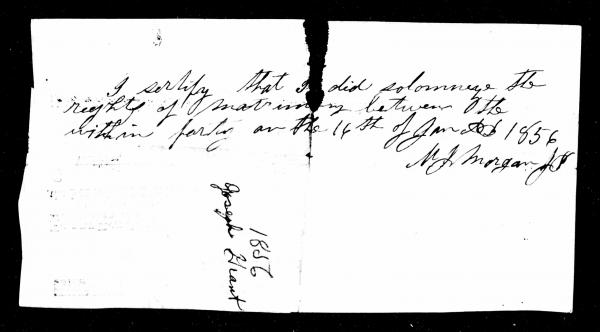 I sertify that I did solomneze the
rights of matrimony between the
within party on the 16th of Jan 1856
M J Morgan J P
1856
Joseph Grant